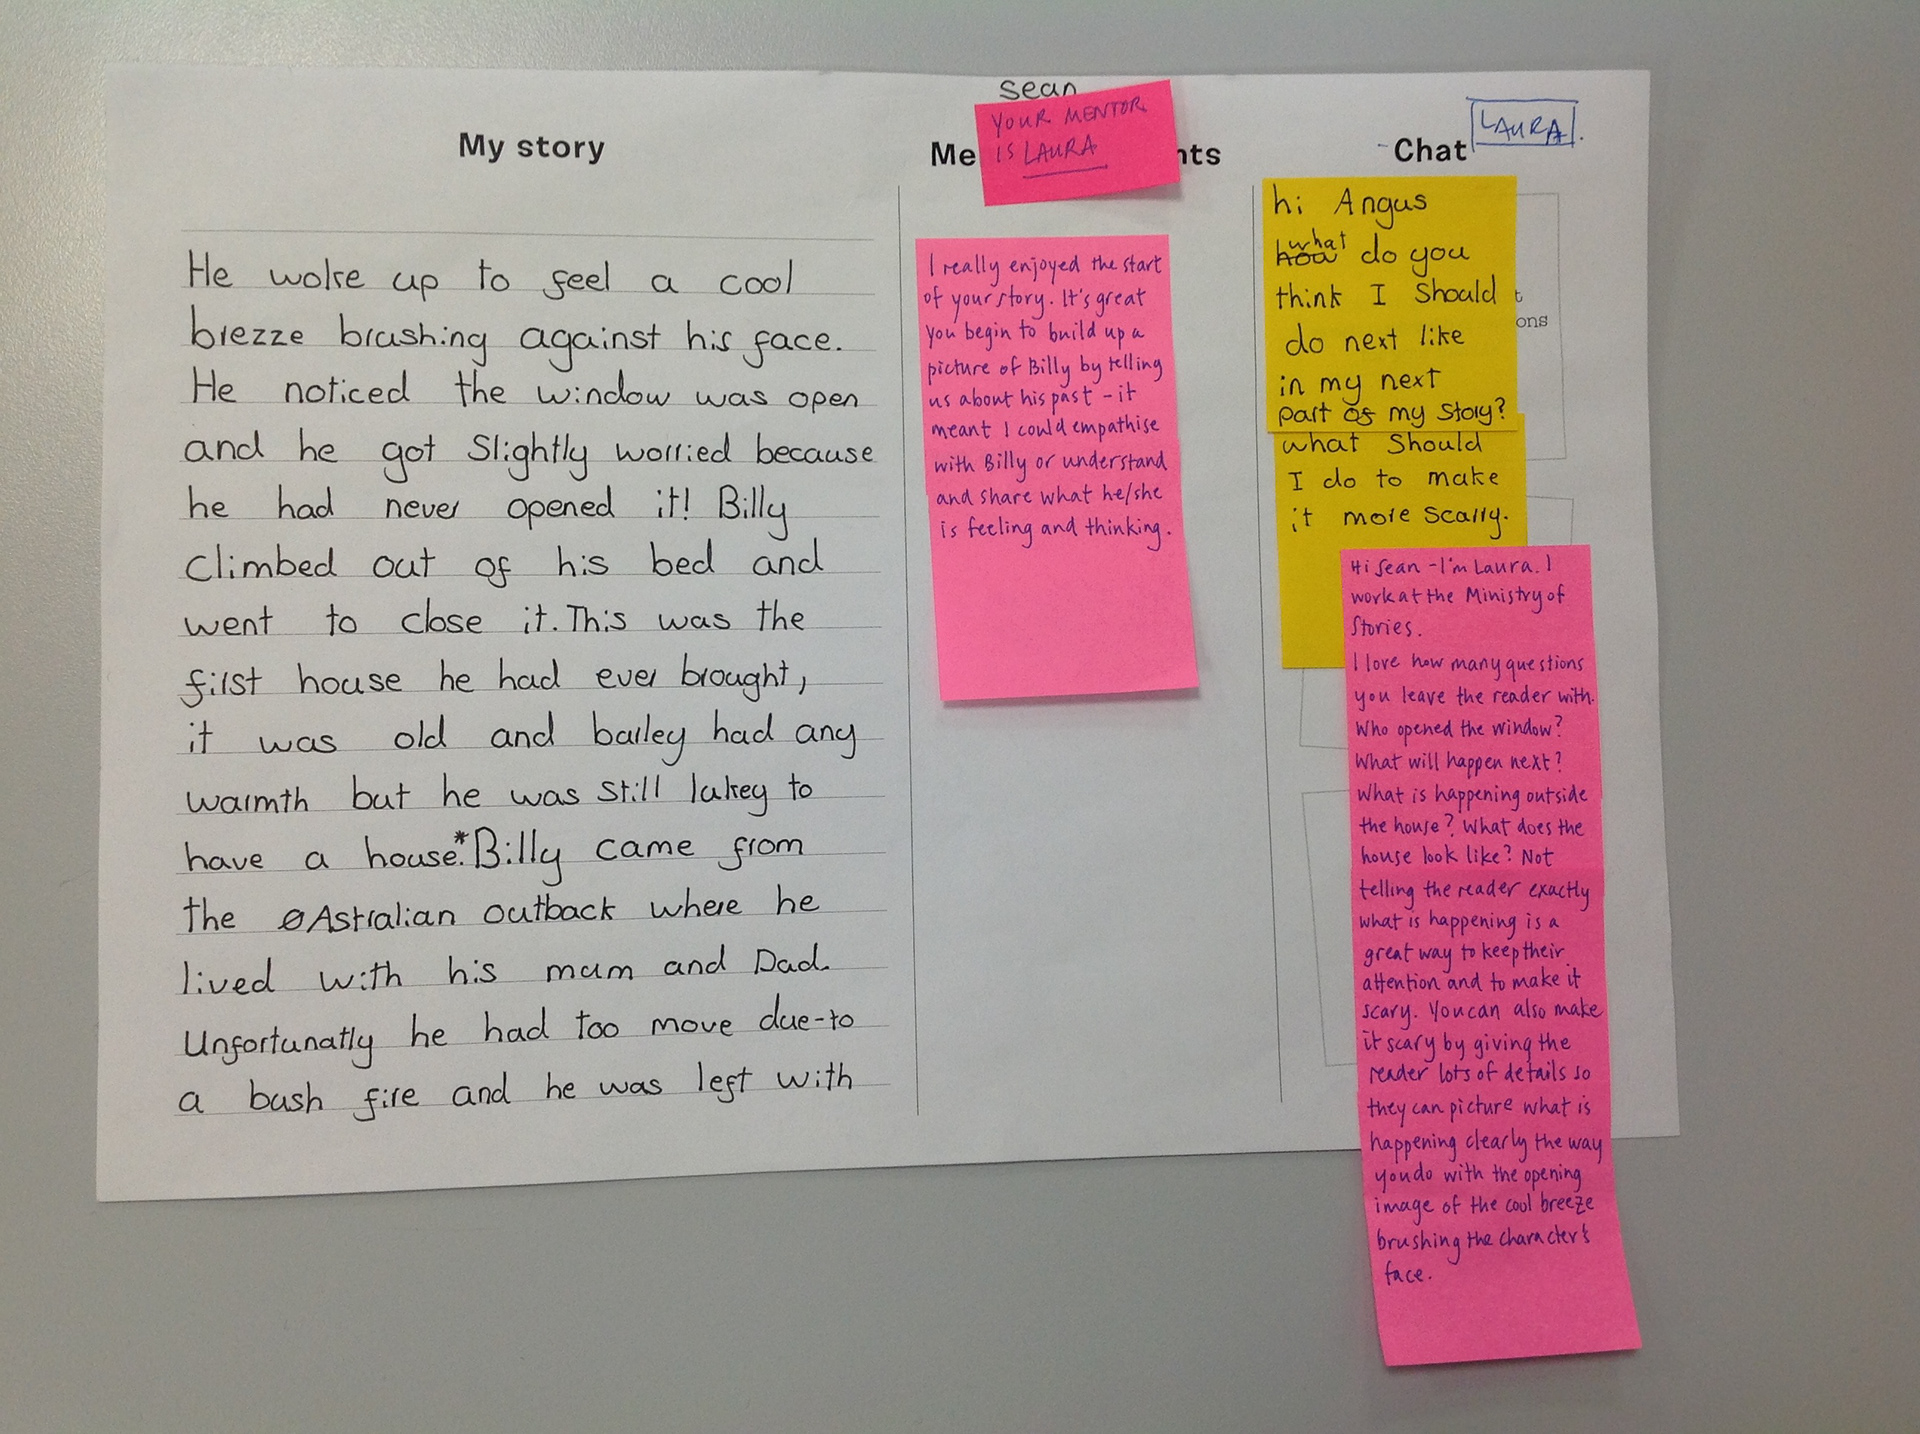 Sean
My story
He woke up to feel a cool
brezze brushing against his face.
He noticed the window was open
and he got Slightly worried because
he had never opened it! Billy
climbed out of his bed and
went to close it. This was the
first house he had ever brought,
it was old and barley had any
warmth but he was still lukey to
have a house.* Billy came from
the Astralian outback where he
lived with his mum and Dad.
Unfortunatly he had too move due-to
a bush fire and he was left with
YOUR MENTOR
IS LAURA
Me
nts
I really enjoyed the start
of your story. It's great
you begin to build up a
picture of Billy by telling
us about his past - it
meant I could empathise
with Billy or understand
and share what he/she
is feeling and thinking.
Chat
LAURA.
hi Angus
how what do you
think I Should
do next like
in my next
part of my story?
what Should
I do to make
it more scarry.
t
ons
Hi Sean - I'm Laura. I
work at the Ministry of
Stories.
I love how many questions
you leave the reader with.
Who opened the window?
What will happen next?
What is happening outside
the house? What does the
house look like? Not
telling the reader exactly
what is happening is a
great way to keep their
attention and to make it
scary. You can also make
it scary by giving the
reader lots of details so
they can picture what is
happening clearly the way
you do with the opening
image of the cool breeze
brushing the character's
face.